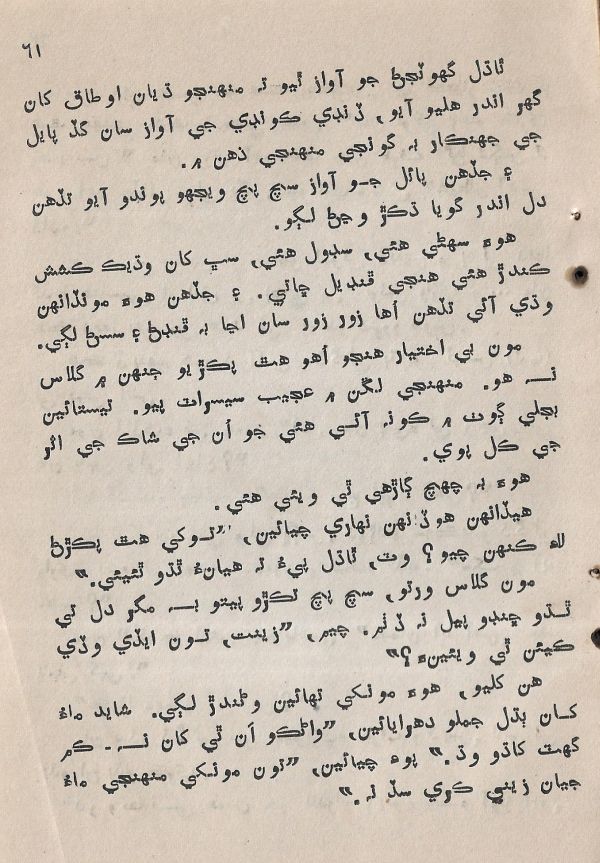 ٦١
ٿاڌل گهوٽجڻ جو آواز ٿيو تہ منهنجو ڌيان اوطاق کان
گهر اندر هليو آيو، ڏنڊي ڪونڊي جي آواز سان گڏ پايل
جي جهنڪار بہ گونجي منهنجي ذهن ۾.
۽ جڏهن پائل جو آواز سچ پچ ويجهو پوندو آيو تڏهن
دل اندر گويا ڌڪڙ وڄڻ لڳو.
هوءَ سهڻي هئي، سڊول هئي، سڀ کان وڌيڪ ڪشش
ڪندڙ هئي هنجي ڦنڊيل ڇاتي. ۽ جڏهن هوءَ مونڏانهن
وڌي آئي تڏهن اُها زور زور سان اڃا بہ ڦنڊڻ ۽ سسڻ لڳي.
مون بي اختيار هنجو اُهو هٿ پڪڙيو جنهن ۾ گلاس
نہ هو. منهنجي لڱن ۾ عجيب سيسراٽ پيو. تيستائين
بجلي ڳوٺ ۾ ڪونہ آئي هئي جو اُن جي شاڪ جي اثر
جي ڪل پوي.
هوءَ بہ ڇهڇ ڳاڙهي ٿي ويئي هئي.
هيڏانهن هوڏانهن نهاري چيائين، ”توکي هٿ پڪڙڻ
لاءِ ڪنهن چيو؟ وٺ، ٿاڌل پيءُ تہ هيانءُ ٿڌو ٿئيئي.“
مون گلاس ورتو، سچ پچ تڪڙو پيتو بہ مگر دل تي
ٿڌو ڇنڊو پيل نہ ڏٺم. چيم، ”زينت، تون ايڏي وڏي
ڪيئن ٿي ويئينءَ؟“
هن کليو، هوءَ مونکي تهائين وڻندڙ لڳي. شايد ماءُ
کان ٻڌل جملو دهرايائين، ”واڻڪو اَن ٿي کان نہ - ڪم
گهٽ کاڌو وڌ.“ پوءِ چيائين، ”تون مونکي منهنجي ماءُ
جيان زيني ڪري سڏ نہ.“